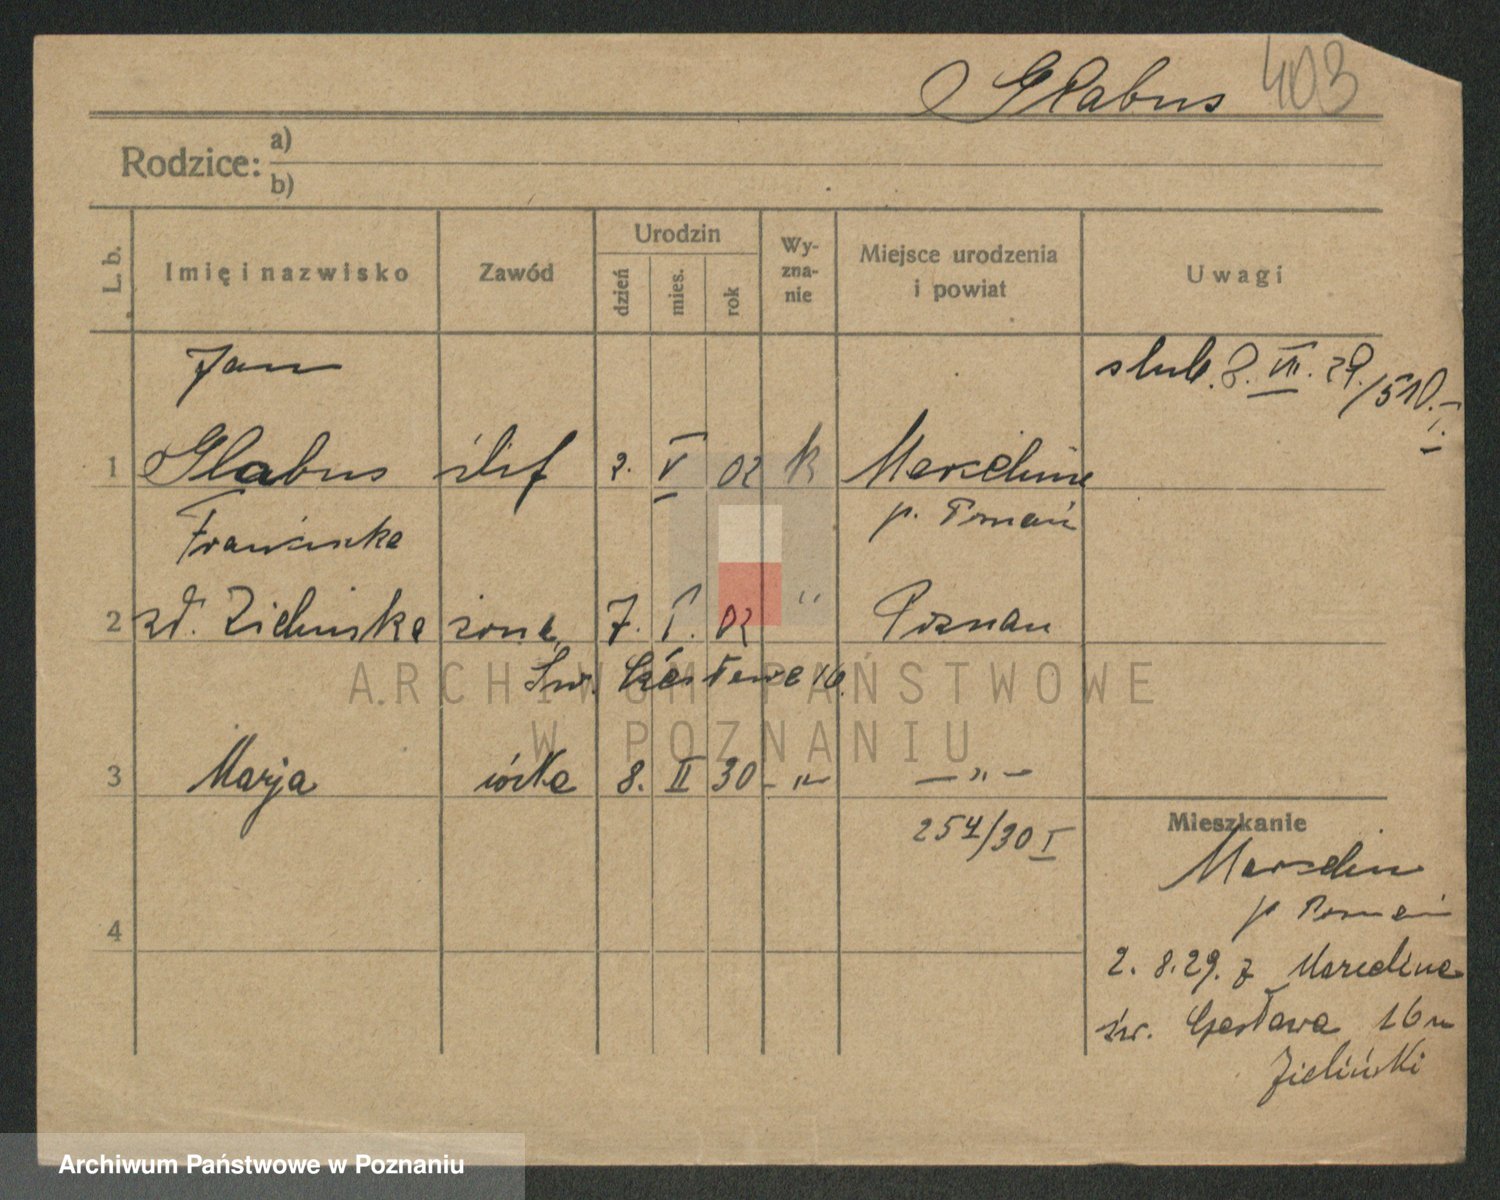 Głabus 403
Rodzice: a)
b)
L. b.
Imię i nazwisko
Zawód
Urodzin
dzień
mies.
rok
Wy-
zna-
nie
Miejsce urodzenia
i powiat
Uwagi
Jan
ślub. 8. VII. 29./510. I.
1 Glabus ślif 2. V 02 k Marceline
p. Poznań
Franciszka
2 zd. Zielinska żona 7. I. 02 " Poznan
Św. Czesława 16.
3 Marja córka 8. II 30 -"- -"-
254/30 I
4
Mieszkanie
Marcelin
p Poznań
2. 8. 29. z Marceline
św. Czesława 16 u
Zieliński
ARCHIWUM PAŃSTWOWE
W POZNANIU
Archiwum Państwowe w Poznaniu